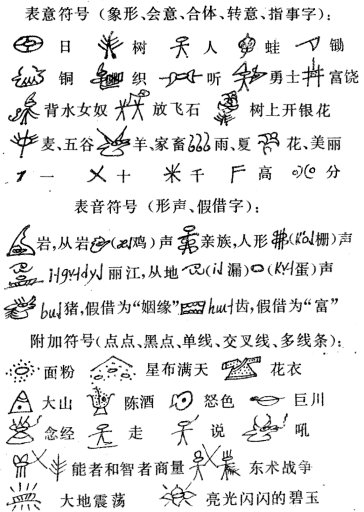 表意符号（象形、会意、合体、转意、指事字）：
日 树 人 蛙 锄
铜 织 听 勇士 富饶
背水女奴 放飞石 树上开银花
麦、五谷 羊、家畜 雨、夏 花、美丽
一 十 千 高 分
表音符号（形声、假借字）：
岩,从岩(鸡)声 亲族,人形(栅)声
丽江,从地(漏)(蛋)声
猪,假借为“姻缘” 齿,假借为“富”
附加符号（点点、黑点、单线、交叉线、多线条）：
面粉 星布满天 花衣
大山 陈酒 怒色 巨川
念经 走 说 吼
能者和智者商量 东术战争
大地震荡 亮光闪闪的碧玉